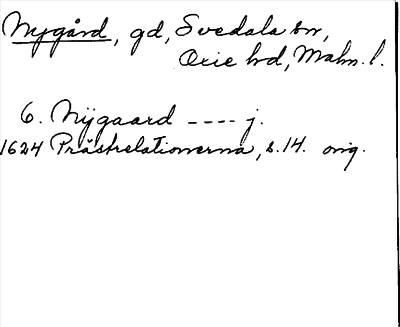 Nygård, gd, Svedala sn,
Oxie hd, Malm. l.
6. Nÿgaard ---- j.
1624 Prästrelationerna, s. 14. orig.